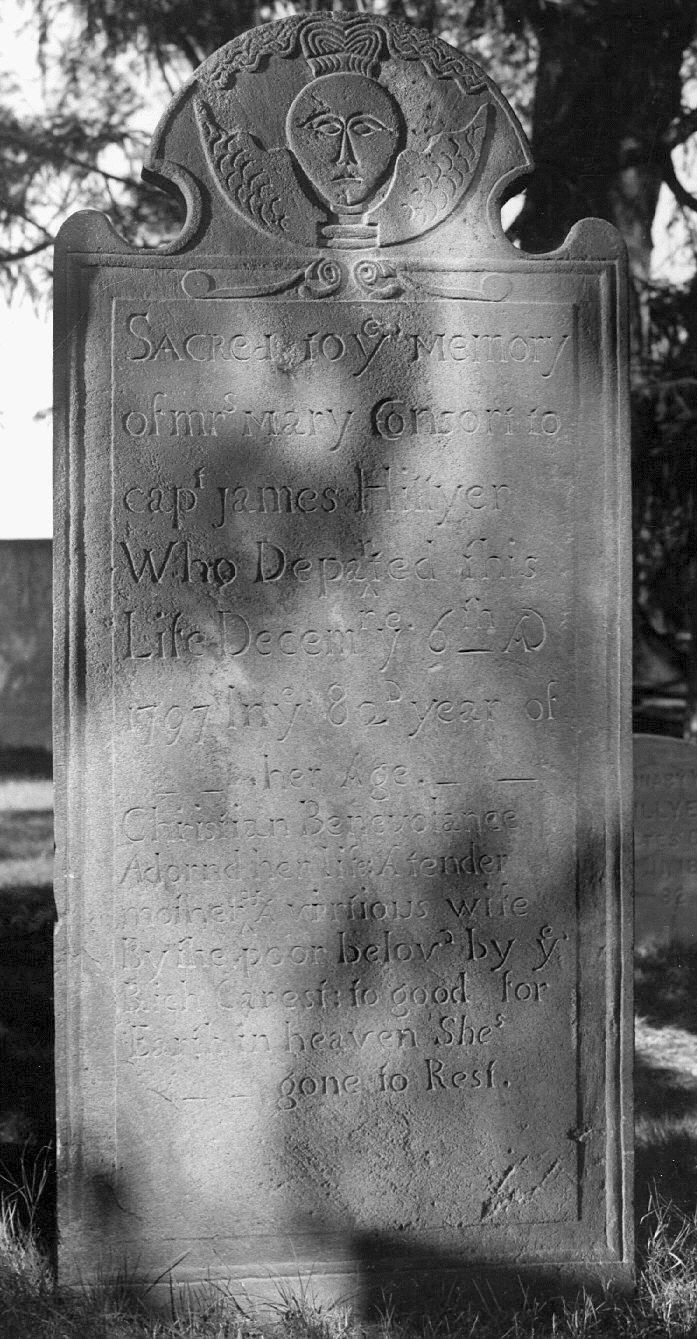 Sacred to yᵉ memory
of mrˢ Mary Consort to
capᵗ James Hillyer
Who Depaʳted this
Life Decemʳ yᵉ 6ᵗʰ AD
1797 In yᵉ 82ᴰ year of
her Age.
Christian Benevolance
Adornd her life A tender
mother A virtious wife
By the poor belovᵈ by yᵉ
Rich Carest: to good for
Earth in heaven Sheˢ
gone to Rest.